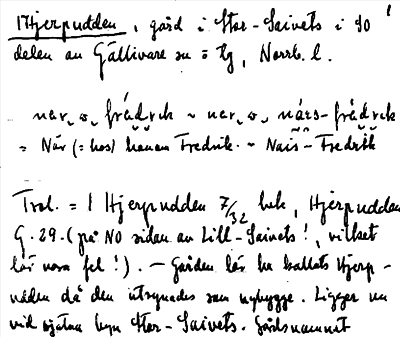 Hjerpudden, gård i Stor-Saivets i SO
delen av Gällivare sn o tg, Norrb. l.
frádrek ~ nárs-frádrek
= När (= hos) Fredrik. ~ Nais-Fredrik
Trol. = 1 Hjerpudden 7/32 hek, Hjerpudden
G. 29. (på NO sidan av Lill-Saivets!, vilket
lär vara fel!). - Gården lär ha kallats Hjerp-
udden då den utsynades som nybygge. Ligger nu
vid själva byn Stor-Saivets. Gårdsnamnet